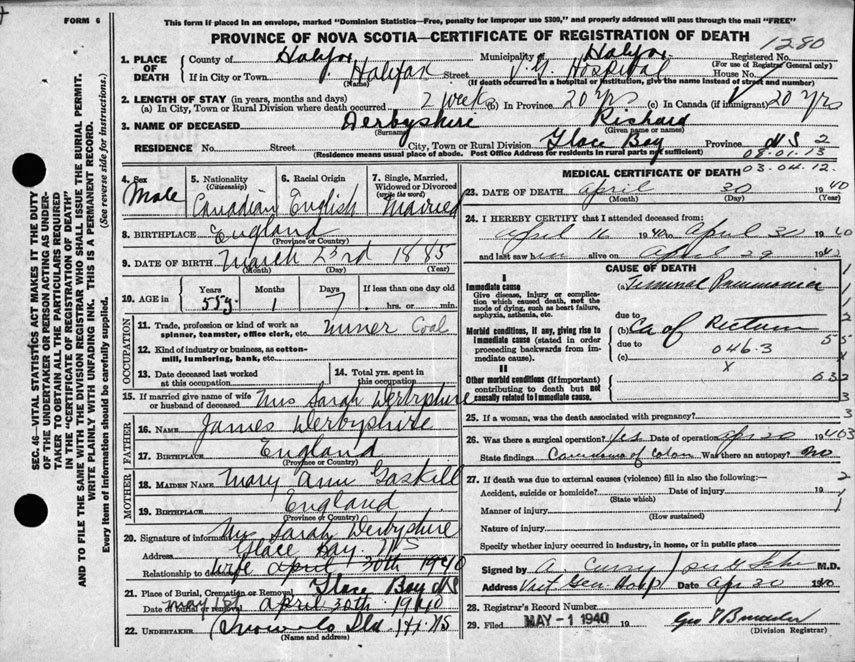 FORM 6
This form if placed in an envelope, marked "Dominion Statistics—Free, penalty for improper use $300," and properly addressed will pass through the mail "FREE"
PROVINCE OF NOVA SCOTIA—CERTIFICATE OF REGISTRATION OF DEATH
1280
SEC. 46—VITAL STATISTICS ACT MAKES IT THE DUTY
OF THE UNDERTAKER OR PERSON ACTING AS UNDER-
TAKER TO OBTAIN ALL THE PARTICULARS REQUIRED
IN THE "CERTIFICATE OF REGISTRATION OF DEATH"
AND TO FILE THE SAME WITH THE DIVISION REGISTRAR WHO SHALL ISSUE THE BURIAL PERMIT.
WRITE PLAINLY WITH UNFADING INK. THIS IS A PERMANENT RECORD.
Every item of information should be carefully supplied. (See reverse side for instructions.)
1. PLACE OF DEATH County of Halifax Municipality of Halifax Registered No.
(For use of Registrar General only)
If in City or Town Halifax Street V.G. Hospital House No.
(Name) (If death occurred in a hospital or institution, give the name instead of street and number)
2. LENGTH OF STAY (in years, months and days)
(a) In City, Town or Rural Division where death occurred 2 weeks (b) In Province 20 yrs (c) In Canada (if immigrant) 20 yrs
3. NAME OF DECEASED Derbyshire Richard
(Surname) (Given name or names)
RESIDENCE No. Street City, Town or Rural Division Glace Bay Province N S 2
(Residence means usual place of abode. Post Office Address for residents in rural parts not sufficient)
08.01.13
03.04.12.
4. Sex Male
5. Nationality (Citizenship) Canadian
6. Racial Origin English
7. Single, Married, Widowed or Divorced (write the word) Married
8. BIRTHPLACE England
(Province or Country)
9. DATE OF BIRTH March 23rd 1885
(Month) (Day) (Year)
10. AGE in Years 55y. Months 1 Days 7 If less than one day old hrs. or min.
OCCUPATION
11. Trade, profession or kind of work as spinner, teamster, office clerk, etc. Miner Coal
12. Kind of industry or business, as cotton-mill, lumbering, bank, etc.
13. Date deceased last worked at this occupation
14. Total yrs. spent in this occupation
15. If married give name of wife or husband of deceased Mrs Sarah Derbyshire
FATHER
16. NAME James Derbyshire
17. BIRTHPLACE England
(Province or Country)
MOTHER
18. MAIDEN NAME Mary Ann Gaskill
19. BIRTHPLACE England
(Province or Country)
20. Signature of informant Mrs Sarah Derbyshire
Address Glace Bay. NS
Relationship to deceased Wife April 30th 1940
21. Place of Burial, Cremation or Removal Glace Bay NS
Date of burial or removal April 30th 1940
22. UNDERTAKER Snow & Co Ltd Hfx NS
(Name and address)
MEDICAL CERTIFICATE OF DEATH
23. DATE OF DEATH April 30 1940
(Month) (Day) (Year)
24. I HEREBY CERTIFY that I attended deceased from:
April 16 1940 to April 30 1940
and last saw him alive on April 29 1940
CAUSE OF DEATH
I
Immediate cause
Give disease, injury or complication which caused death, not the mode of dying, such as heart failure, asphyxia, asthenia, etc.
(a) Terminal Pneumonia
due to
Morbid conditions, if any, giving rise to immediate cause (stated in order proceeding backwards from immediate cause).
(b) Ca of Rectum
due to
046.3
(c)
x
II
Other morbid conditions (if important) contributing to death but not causally related to immediate cause.
25. If a woman, was the death associated with pregnancy?
26. Was there a surgical operation? Yes Date of operation Apr 20 1940
State findings Carcinoma of Colon Was there an autopsy? No
27. If death was due to external causes (violence) fill in also the following:—
Accident, suicide or homicide? Date of injury 19
(State which)
Manner of injury
(How sustained)
Nature of injury
Specify whether injury occurred in industry, in home, or in public place
Signed by M.D.
Address Vict Gen Hosp Date Apr 30 1940
28. Registrar's Record Number
29. Filed MAY - 1 1940 19
(Division Registrar)